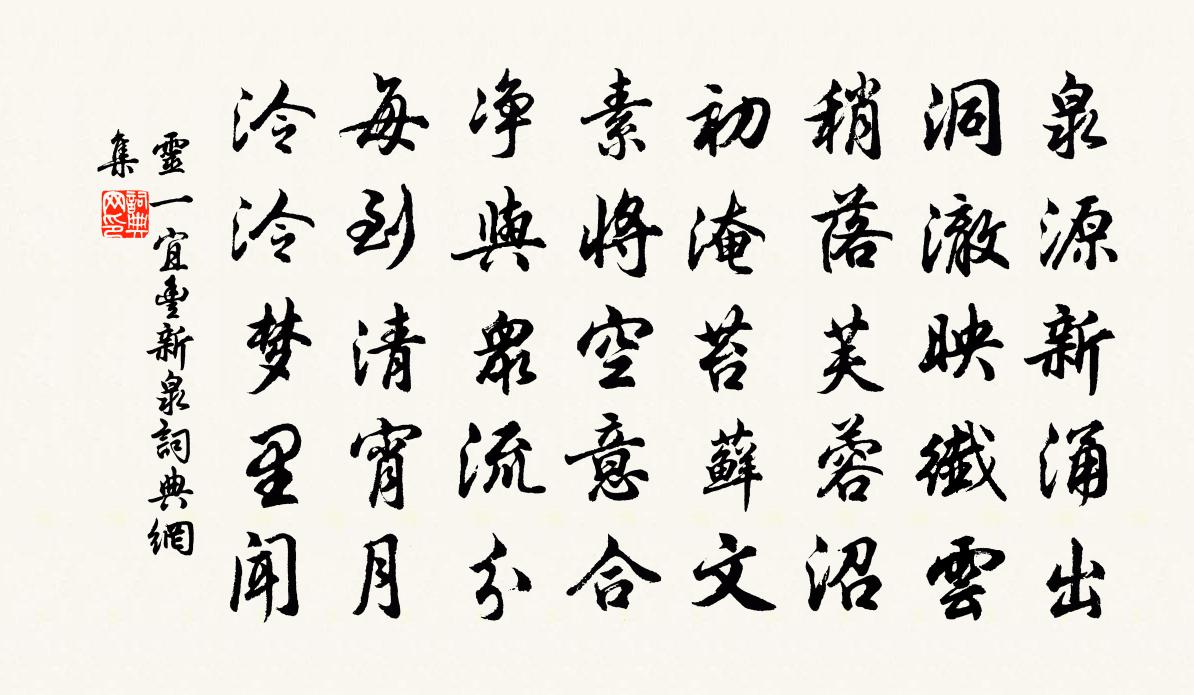 泉源新涌出
洞澈映纖雲
稍落芙蓉沼
初淹苔蘚文
素將空意合
净與衆流分
每到清宵月
泠泠梦里聞
靈一宜豐新泉詞典網
集
詞典
网印